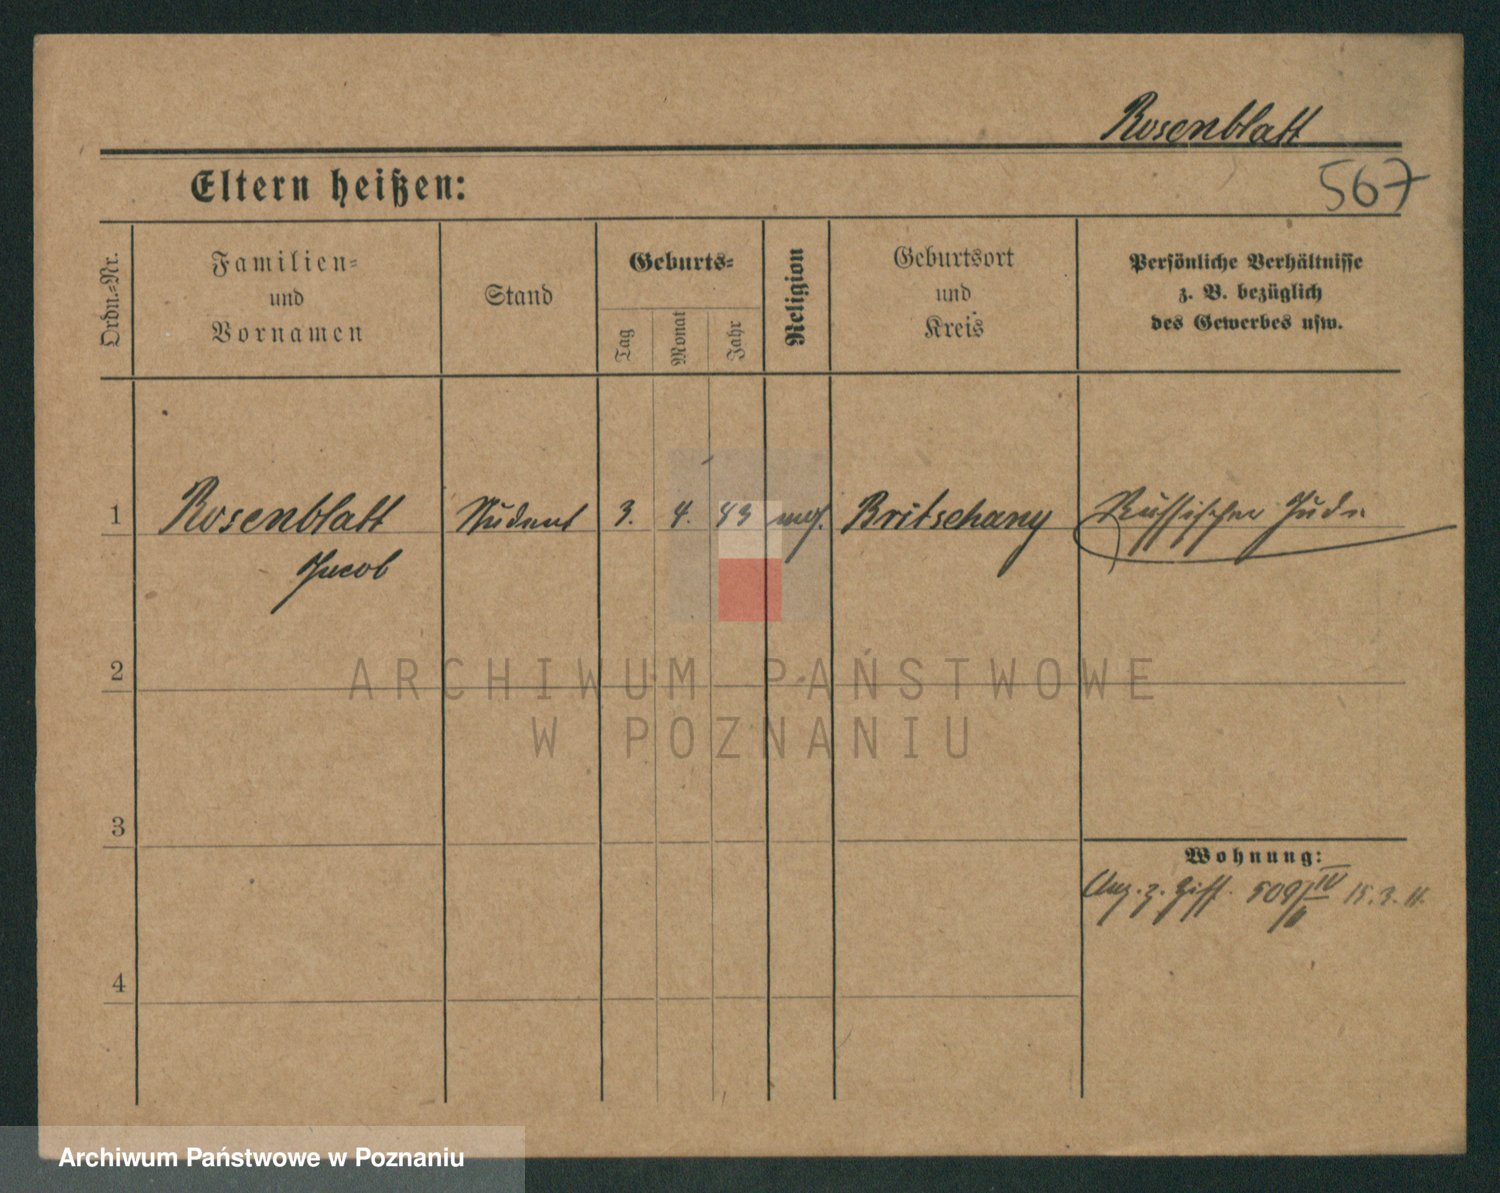 Rosenblatt
Eltern heißen:
567
Ordn.-Nr.
Familien-
und
Vornamen
Stand
Geburts-
Tag
Monat
Jahr
Religion
Geburtsort
und
Kreis
Persönliche Verhältnisse
z. B. bezüglich
des Gewerbes usw.
1 Rosenblatt Student 3. 4. mos. Britschany Russischer Jude
Jacob
2
ARCHIWUM PAŃSTWOWE
W POZNANIU
3
Wohnung:
z. 509 IV 15. 3. 11.
4
Archiwum Państwowe w Poznaniu